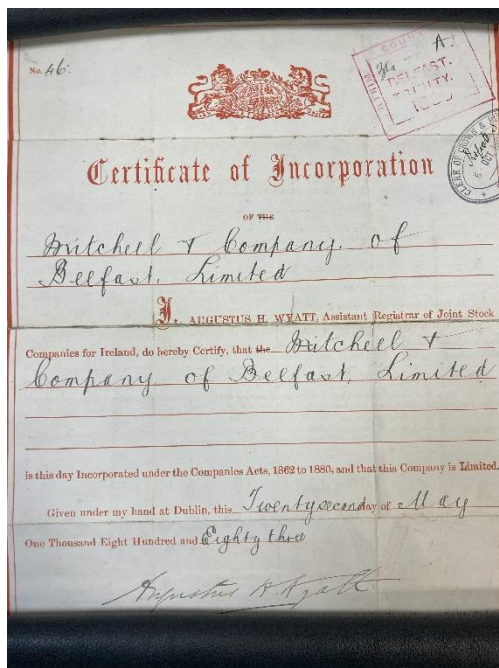 No. 46.
COUNTY
A
BELFAST.
Certificate of Incorporation
CLERK OF CROWN &
OF THE
Mitchell & Company of
Belfast, Limited
I, AUGUSTUS H. WYATT, Assistant Registrar of Joint Stock
Companies for Ireland, do hereby Certify, that the Mitchell &
Company of Belfast, Limited
is this day Incorporated under the Companies Acts, 1862 to 1880, and that this Company is Limited.
Given under my hand at Dublin, this Twentysecond day of May
One Thousand Eight Hundred and Eighty three
Augustus H Wyatt